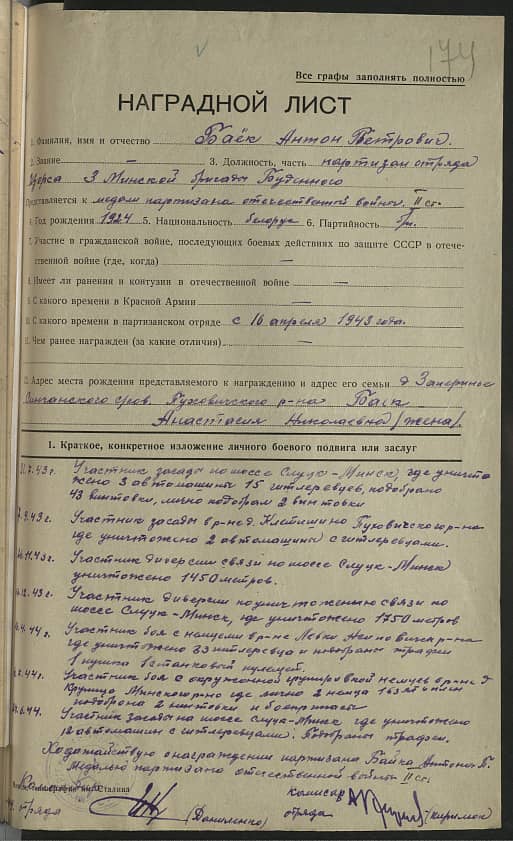 174
Все графы заполнять полностью
НАГРАДНОЙ ЛИСТ
1. Фамилия, имя и отчество Баёк Антон Петрович.
2. Звание — 3. Должность, часть партизан отряда
Щорса 3 Минской бригады Буденного
Представляется к медали партизана отечественной войны II ст.
4. Год рождения 1924 5. Национальность белорус 6. Партийность б/п.
7. Участие в гражданской войне, последующих боевых действиях по защите СССР в отече-
ственной войне (где, когда) —
8. Имеет ли ранения и контузии в отечественной войне —
9. С какого времени в Красной Армии —
10. С какого времени в партизанском отряде с 16 апреля 1943 года.
11. Чем ранее награжден (за какие отличия) —
12. Адрес места рождения представляемого к награждению и адрес его семьи д
Пуховичского р-на Баёк
Анастасия Николаевна /жена/.
1. Краткое, конкретное изложение личного боевого подвига или заслуг
7.43г. Участник засады на шоссе Слуцк-Минск, где уничто-
жено 3 автомашины 15 гитлеровцев, подобрано
43 винтовки, лично подобрал 2 винтовки
9.43г. Участник засады в р-не д. Клетишино Пуховичского р-на
где уничтожено 2 автомашины с гитлеровцами.
11.43г. Участник диверсии связи на шоссе Слуцк-Минск
уничтожено 1450 метров.
12.43г. Участник диверсии по уничтожению связи на
шоссе Слуцк-Минск, где уничтожено 1750 метров
4.44г. Участник боя с немцами в р-не р-на
где уничтожено 23 гитлеровца и побраны трофеи
1 пушка 1 станковый пулемет.
44г. Участник боя с окруженной группировкой немцев в р-не д
Крупица Минского р-на где лично 2 немца
подобрано 2 винтовки и боеприпасы
6.44. Участник засады на шоссе Слуцк-Минск где уничтожено
2 автомашин с гитлеровцами. Подобраны трофеи.
Ходатайствую о награждении партизана Байка Антона П.
Медалью партизана отечественной войны II ст.
Сталина
отряда (Даниленко) комиссар
отряда